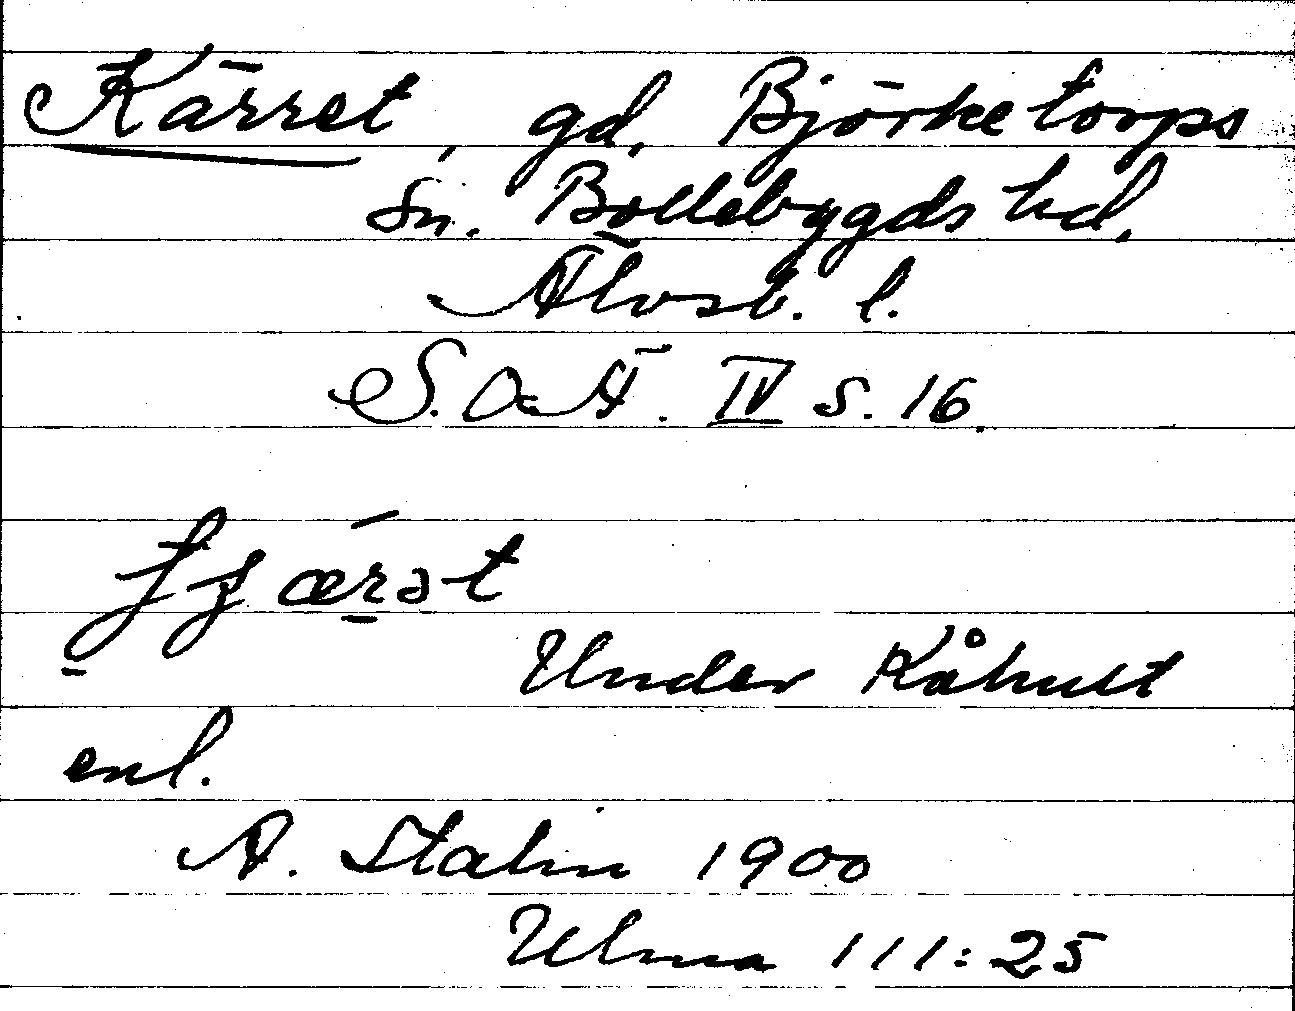 Kärret, gd, Björketorps
sn. Bollebygds hd,
Älvsb. l.
S.O.Ä. IV s. 16.
Under Kåhult
enl.
A. Stalin 1900
Ulma 111:25